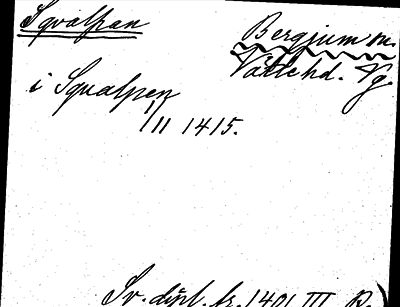 Sqvalpan
Bergjum sn.
Vättle hd. Vg
i Squalpen
1/11 1415.
Sv. dipl. fr. 1401 III